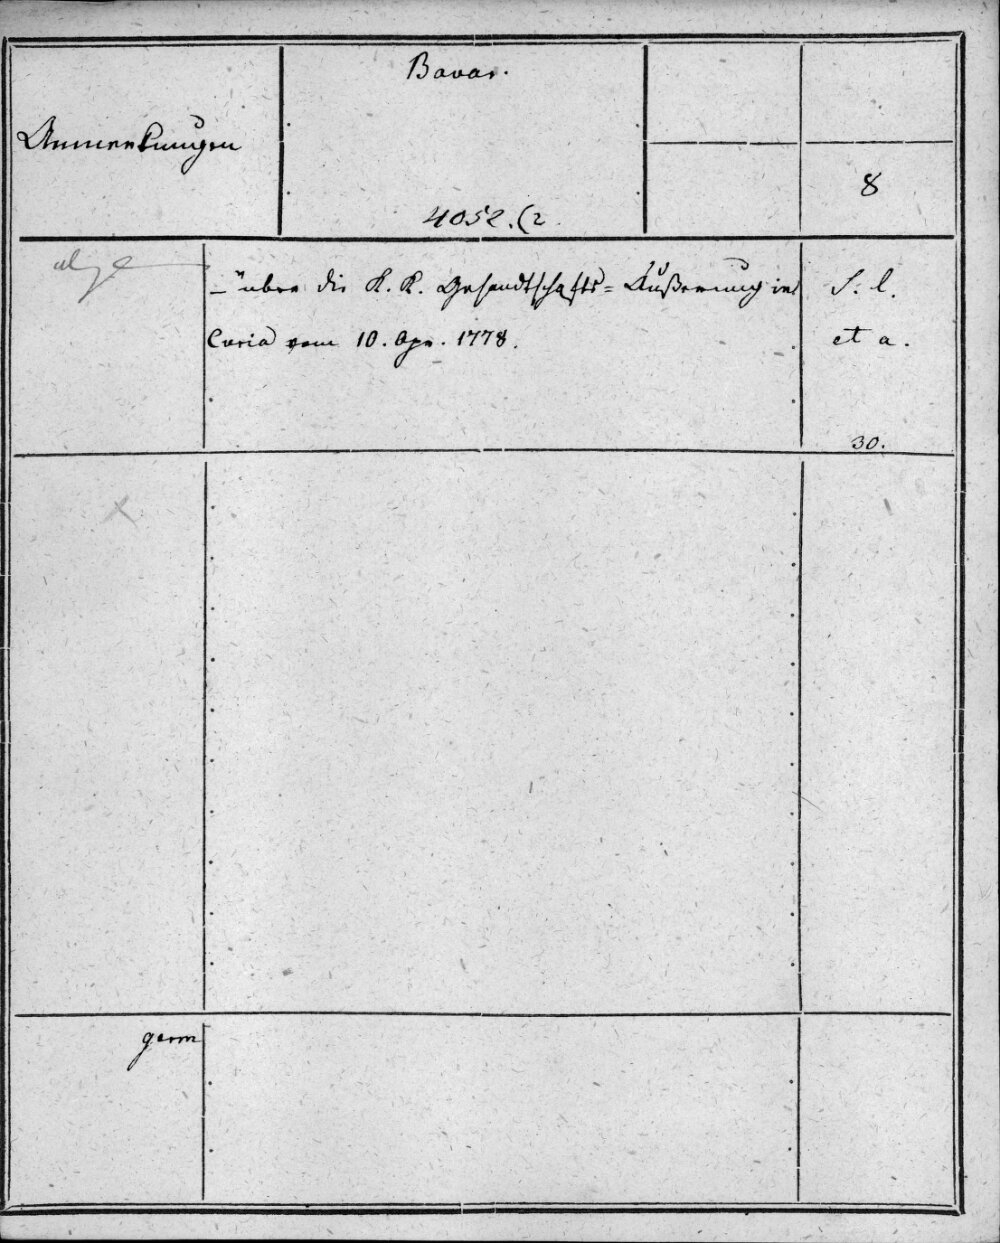 Bavar.
Anmerkungen
8
4052.(2
– über die K. K. Gesandtschafts = Äußerung in
Curia vom 10. Apr. 1778.
S. l.
et a.
30.
germ